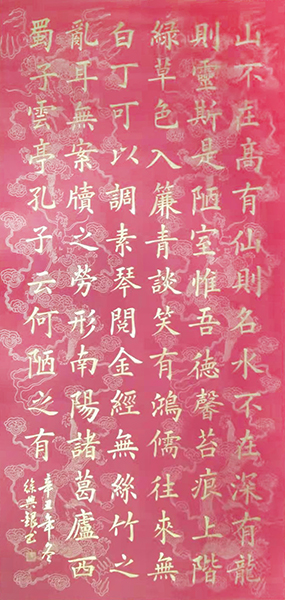 山不在髙有仙則名水不在深有龍
則靈斯是陋室惟吾徳馨苔痕上階
綠草色入簾青談笑有鴻儒往來無
白丁可以調素琴閱金經無絲竹之
亂耳無案牘之勞形南陽諸葛廬西
蜀子雲亭孔子云何陋之有
辛丑年冬
徐興银书